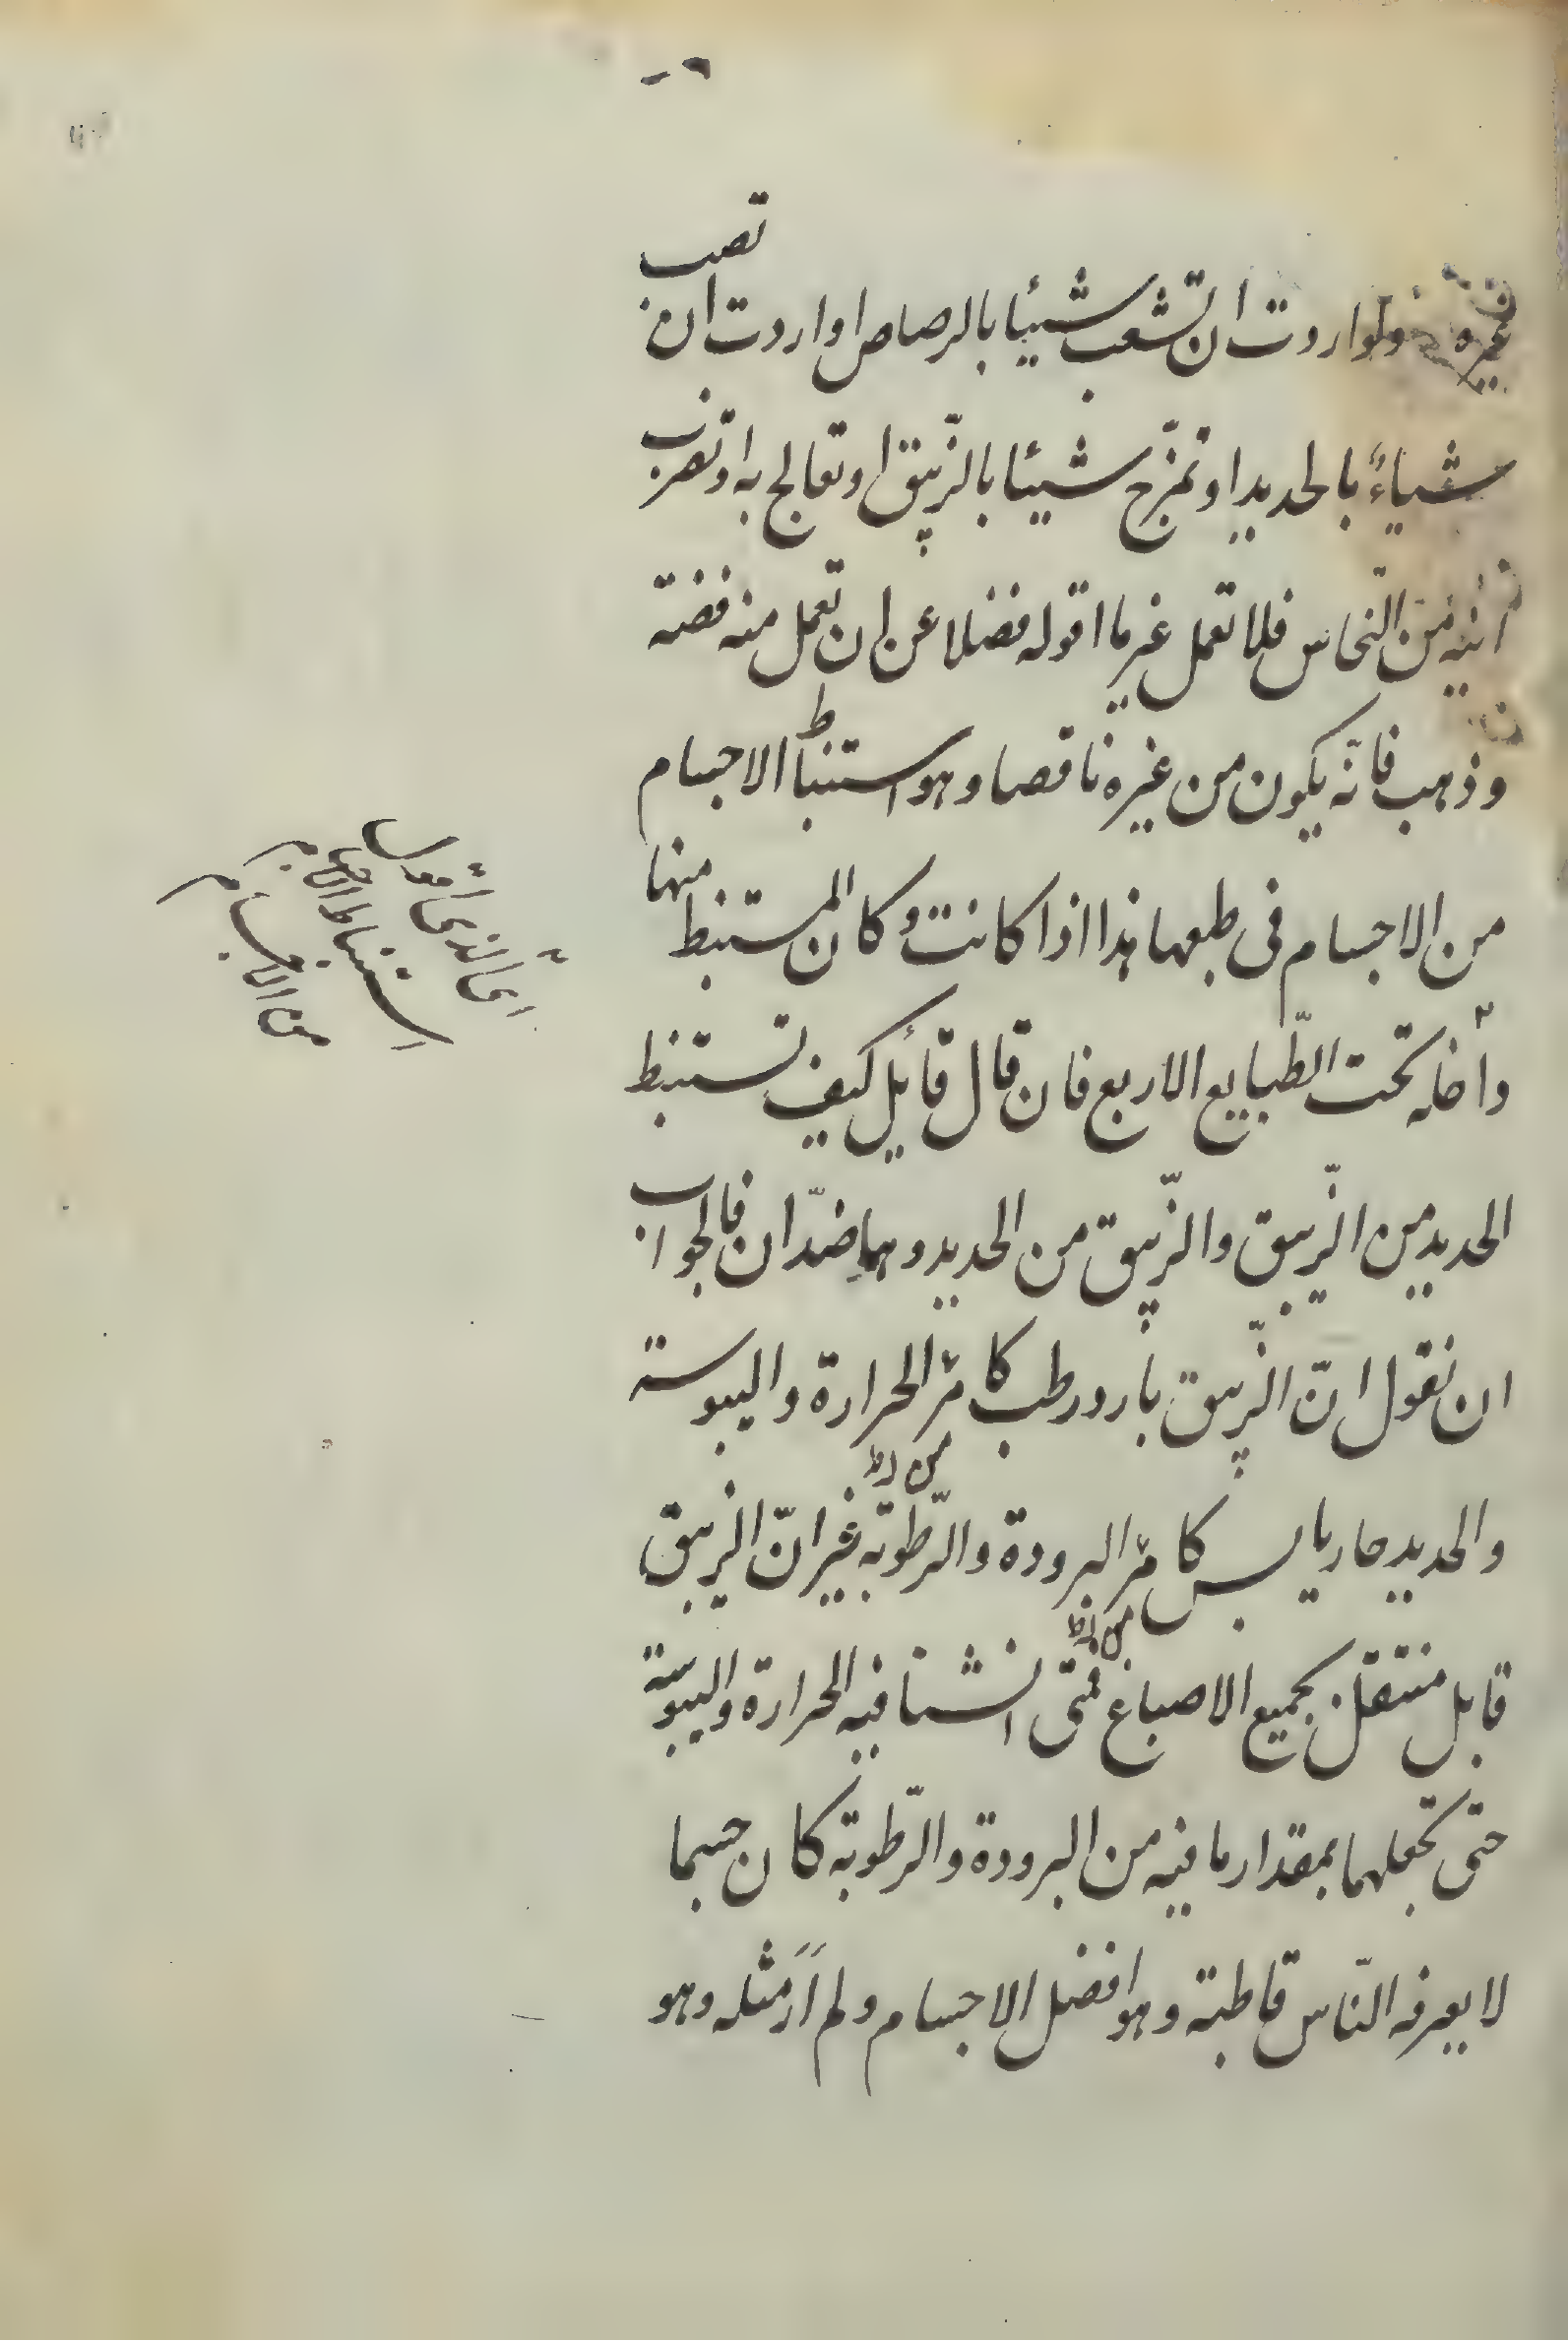 غيره ولو اردت ان تشعب شيئا بالرصاص او اردت ان تصب
شياءً بالحديد او تمزّج شيئا بالزّيبق او تعالج به او تضرب
انيه من النّحاس فلا تعمل غير ما اقوله فضلا عن ان تعمل منه فضته
وذهب فانّه يكون من غيره ناقصا وهو استنباط الاجسام
من الاجسام فى طبعها هذا اذا كانت و كان المستنبط منها
داخله تحت الطّبايع الاربع فان قال قائل كيف تستنبط
الحديد من الزّيبق والزّيبق من الحديد وهما ضدّان فالجواب
ان نقول انّ الزّيبق بارد رطب كامن الحرارة واليبوسة
والحديد حار يابس كامن البرودة والرّطوبة غير انّ الزيبق
قابل منتقل بجميع الاصباغ فمتى انشئنا فيه الحرارة واليبوسة
حتى تجعلهما بمقدار ما فيه من البرودة والرّطوبة كان جسما
لا يعرفه النّاس قاطبة وهو افضل الاجسام ولم اَرَ مثله وهو
اى الذى اقول
استنباط الاجسام
من الاجسام